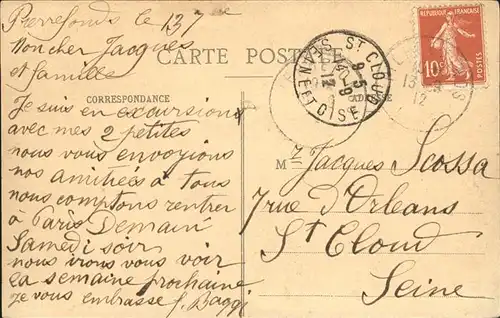 Pierrefonds le 13 7bre
Mon cher Jacques
et famille
CARTE POSTALE
CORRESPONDANCE
Je suis en excursions
avec mes 2 petites
nous vous envoyions
nos amitiées à tous
nous comptons rentrer
à Paris Demain
Samedi soir
nous irons vous voir
la semaine prochaine
Je vous embrasse J. Baggi
REPUBLIQUE FRANÇAISE
10c
POSTES
ST CLOUD
9-5
14-9
12
SEINE ET OISE
12
Mr Jacques Scossa
7 rue d'Orleans
St Cloud
Seine